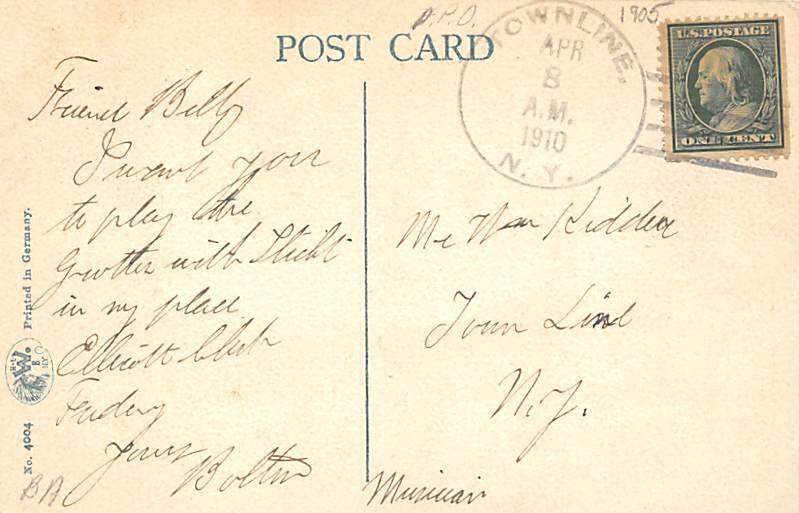 D.P.O.
1905
POST CARD
TOWNLINE,
APR
8
A.M.
1910
N. Y.
U.S. POSTAGE
ONE CENT
Friend Billy
I want you
to play the
with
in my place
Ellicott Club
Yours
Bolton
Mr Wm Kidder
Town Line
N.Y.
Musician
Printed in Germany.
No. 4004
BA